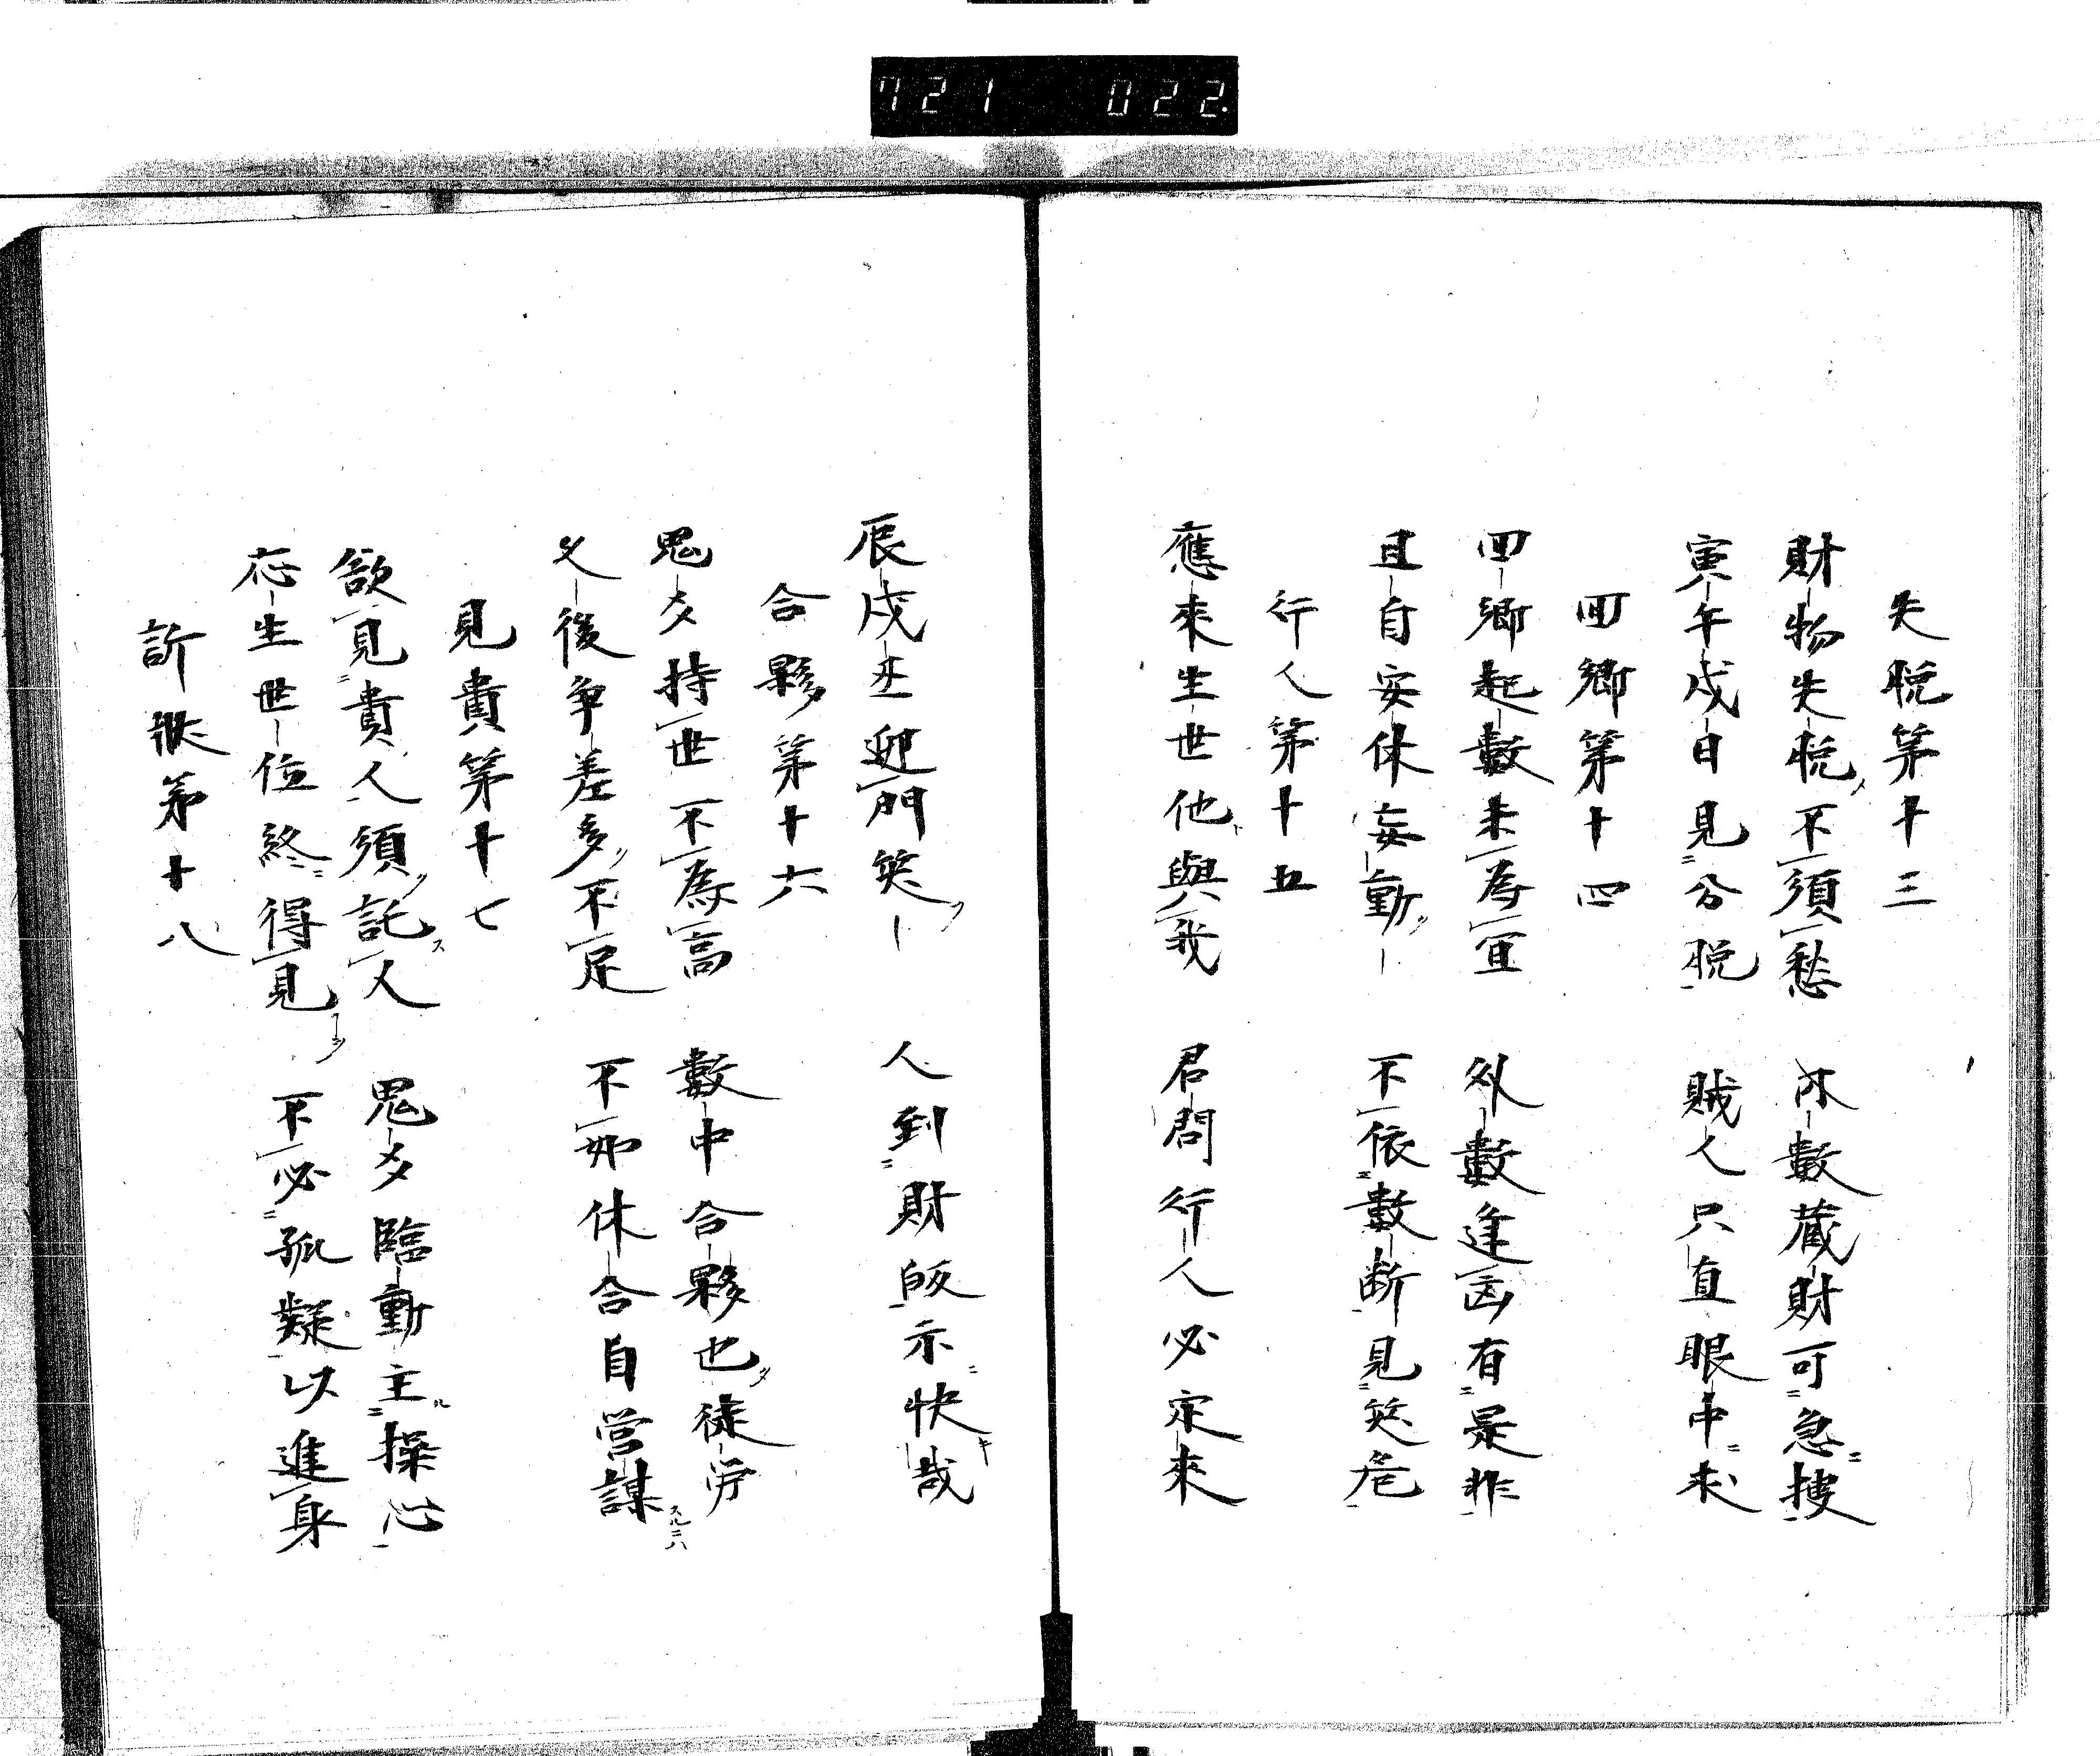 721 022
失脱第十三
財物失脱不須愁 亦數蔵財可急捜
寅午戌日見分脱 賊人只直眼中求
囬郷第十四
囬郷起數未為宜 外數逢凶有是非
且自安休妄動 不依數断見笑危
行人第十五
應來生世他與我 君問行人必定來
辰戌丑迎門笑 人到財皈示快哉
合夥第十六
鬼爻持世不為高 數中合夥也徒労
父後争差多不足 不如休合自営謀
見貴第十七
欲見貴人須託人 鬼爻臨動主操心
応生世位終得見 不必孤疑以進身
訴状第十八